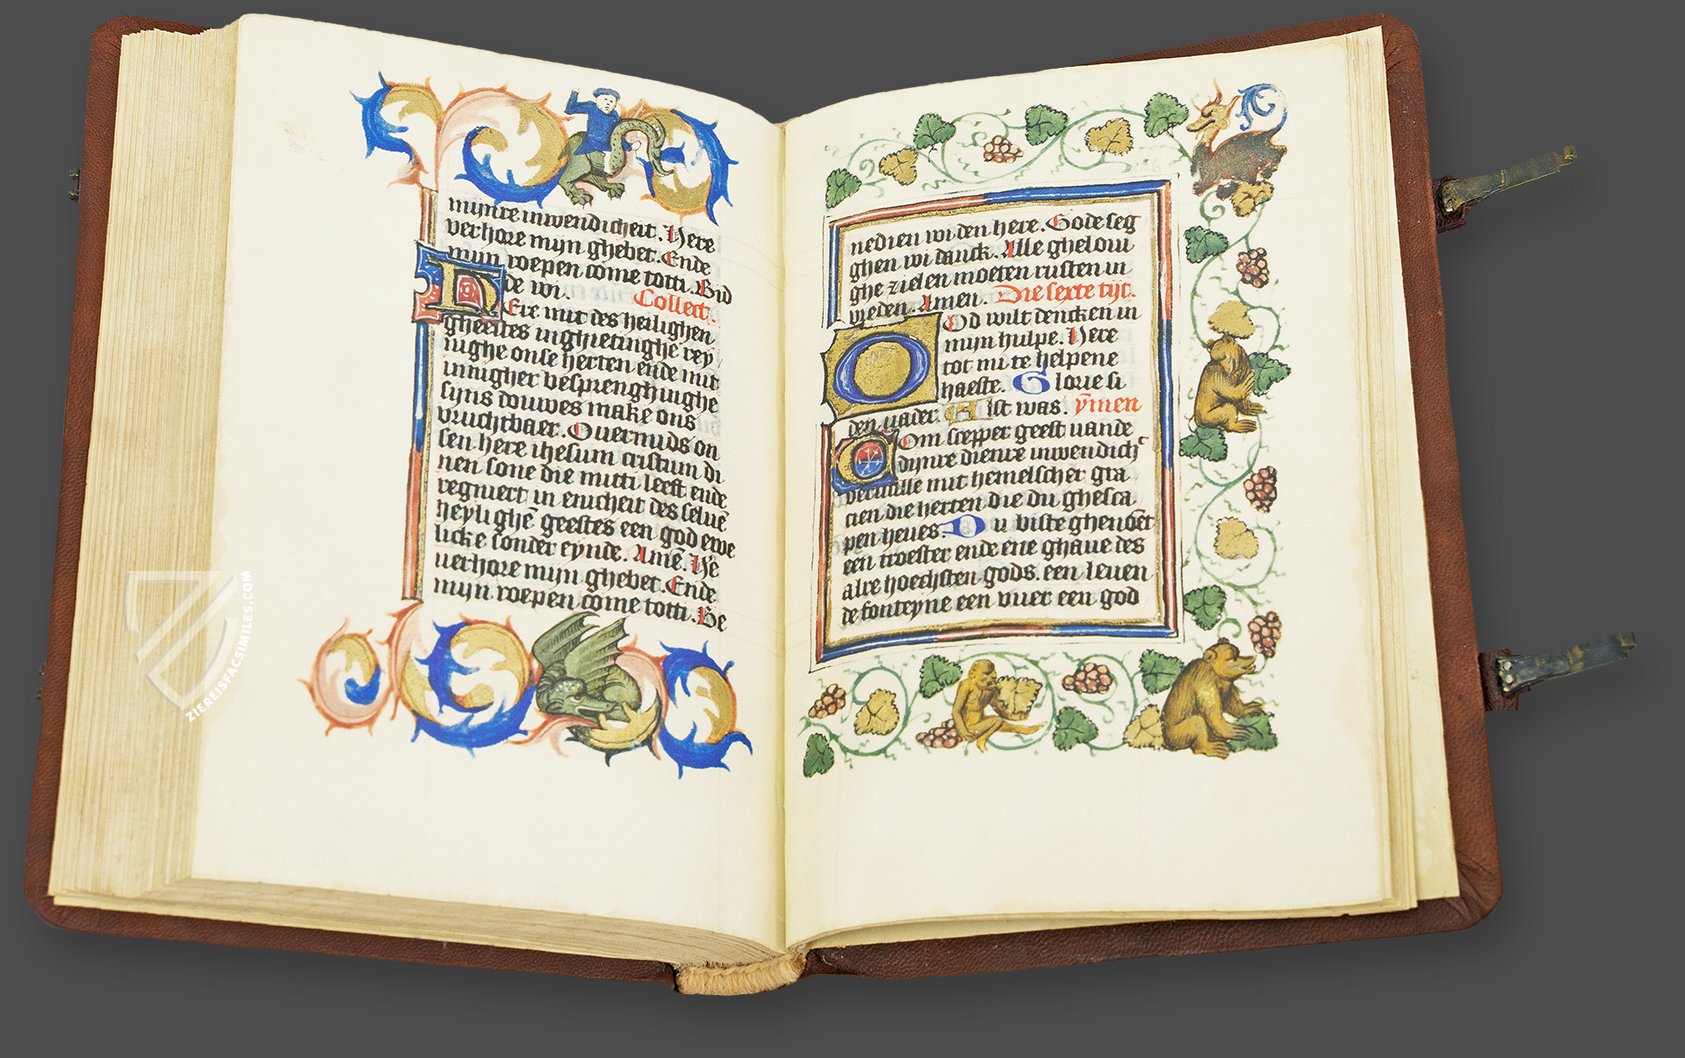 mynre inwendicheit. Here
verhore myn ghebet. Ende
myn roepen come totti. Bid
de wi. Collect.
HEre mit des heilighen
gheestes inghietinghe rey
nighe onse herten ende mit
innigher besprenghinghe
sijns douwes make ons
vruchtbaer. Ouermids on
sen here ihesum cristum di
nen sone die mitti leeft ende
regniert in enicheit des seluē
heylighē geestes een god ewe
licke sonder eynde. Amē. He
uerhore myn ghebet. Ende
myn roepen come totti. Be
nedien wi den here. Gode seg
ghen wi danck. Alle gheloui
ghe zielen moeten rusten in
vreden. Amen. Die sexte tijt.
GOd wilt dencken in
mijn hulpe. Here
tot mi te helpene
haeste. Glorie si
den uader. Alst was. ymen
COm scepper geest uande
dijnre dienre inwendich
veruulle mit hemelscher gra
cien die herten die du ghesca
pen heues. Du biste ghenoēt
een troester ende ene ghaue des
alre hoechsten gods. een leuen
de fonteyne een vuer een god
ZIEREISFACSIMILES.COM